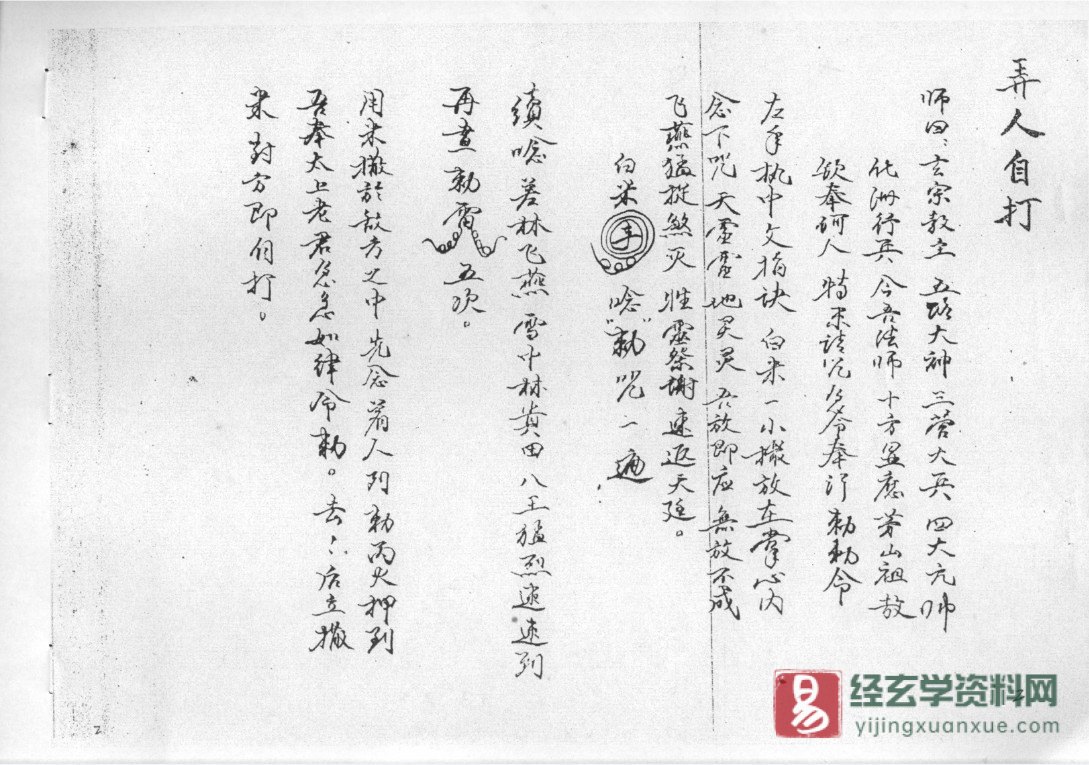 弄人自打
师曰：玄宗教主 五路大神 三营大兵 四大元帅
化洲行兵 今吾法师 十方显应 茅山祖教
欲奉 人 特来请 急令奉行 勅勅令
左手执中文指诀 白米一小撮放在掌心内
念下咒 天灵灵 地灵灵 吾放即应 无放不成
飞燕猛捉煞灭 性灵祭谢速返天廷。
白米 唸“勅咒一遍
續唸 若林飞燕 雪中林 田 八王猛烈 速速到
再畫勅雷 五次。
用米撒於敌方之中 先念着人到 勅丙火押到
吾奉太上老君急急如律令勅。去 后立撒
米 对方即自打。
2
易
经玄学资料网
yijingxuanxue.com